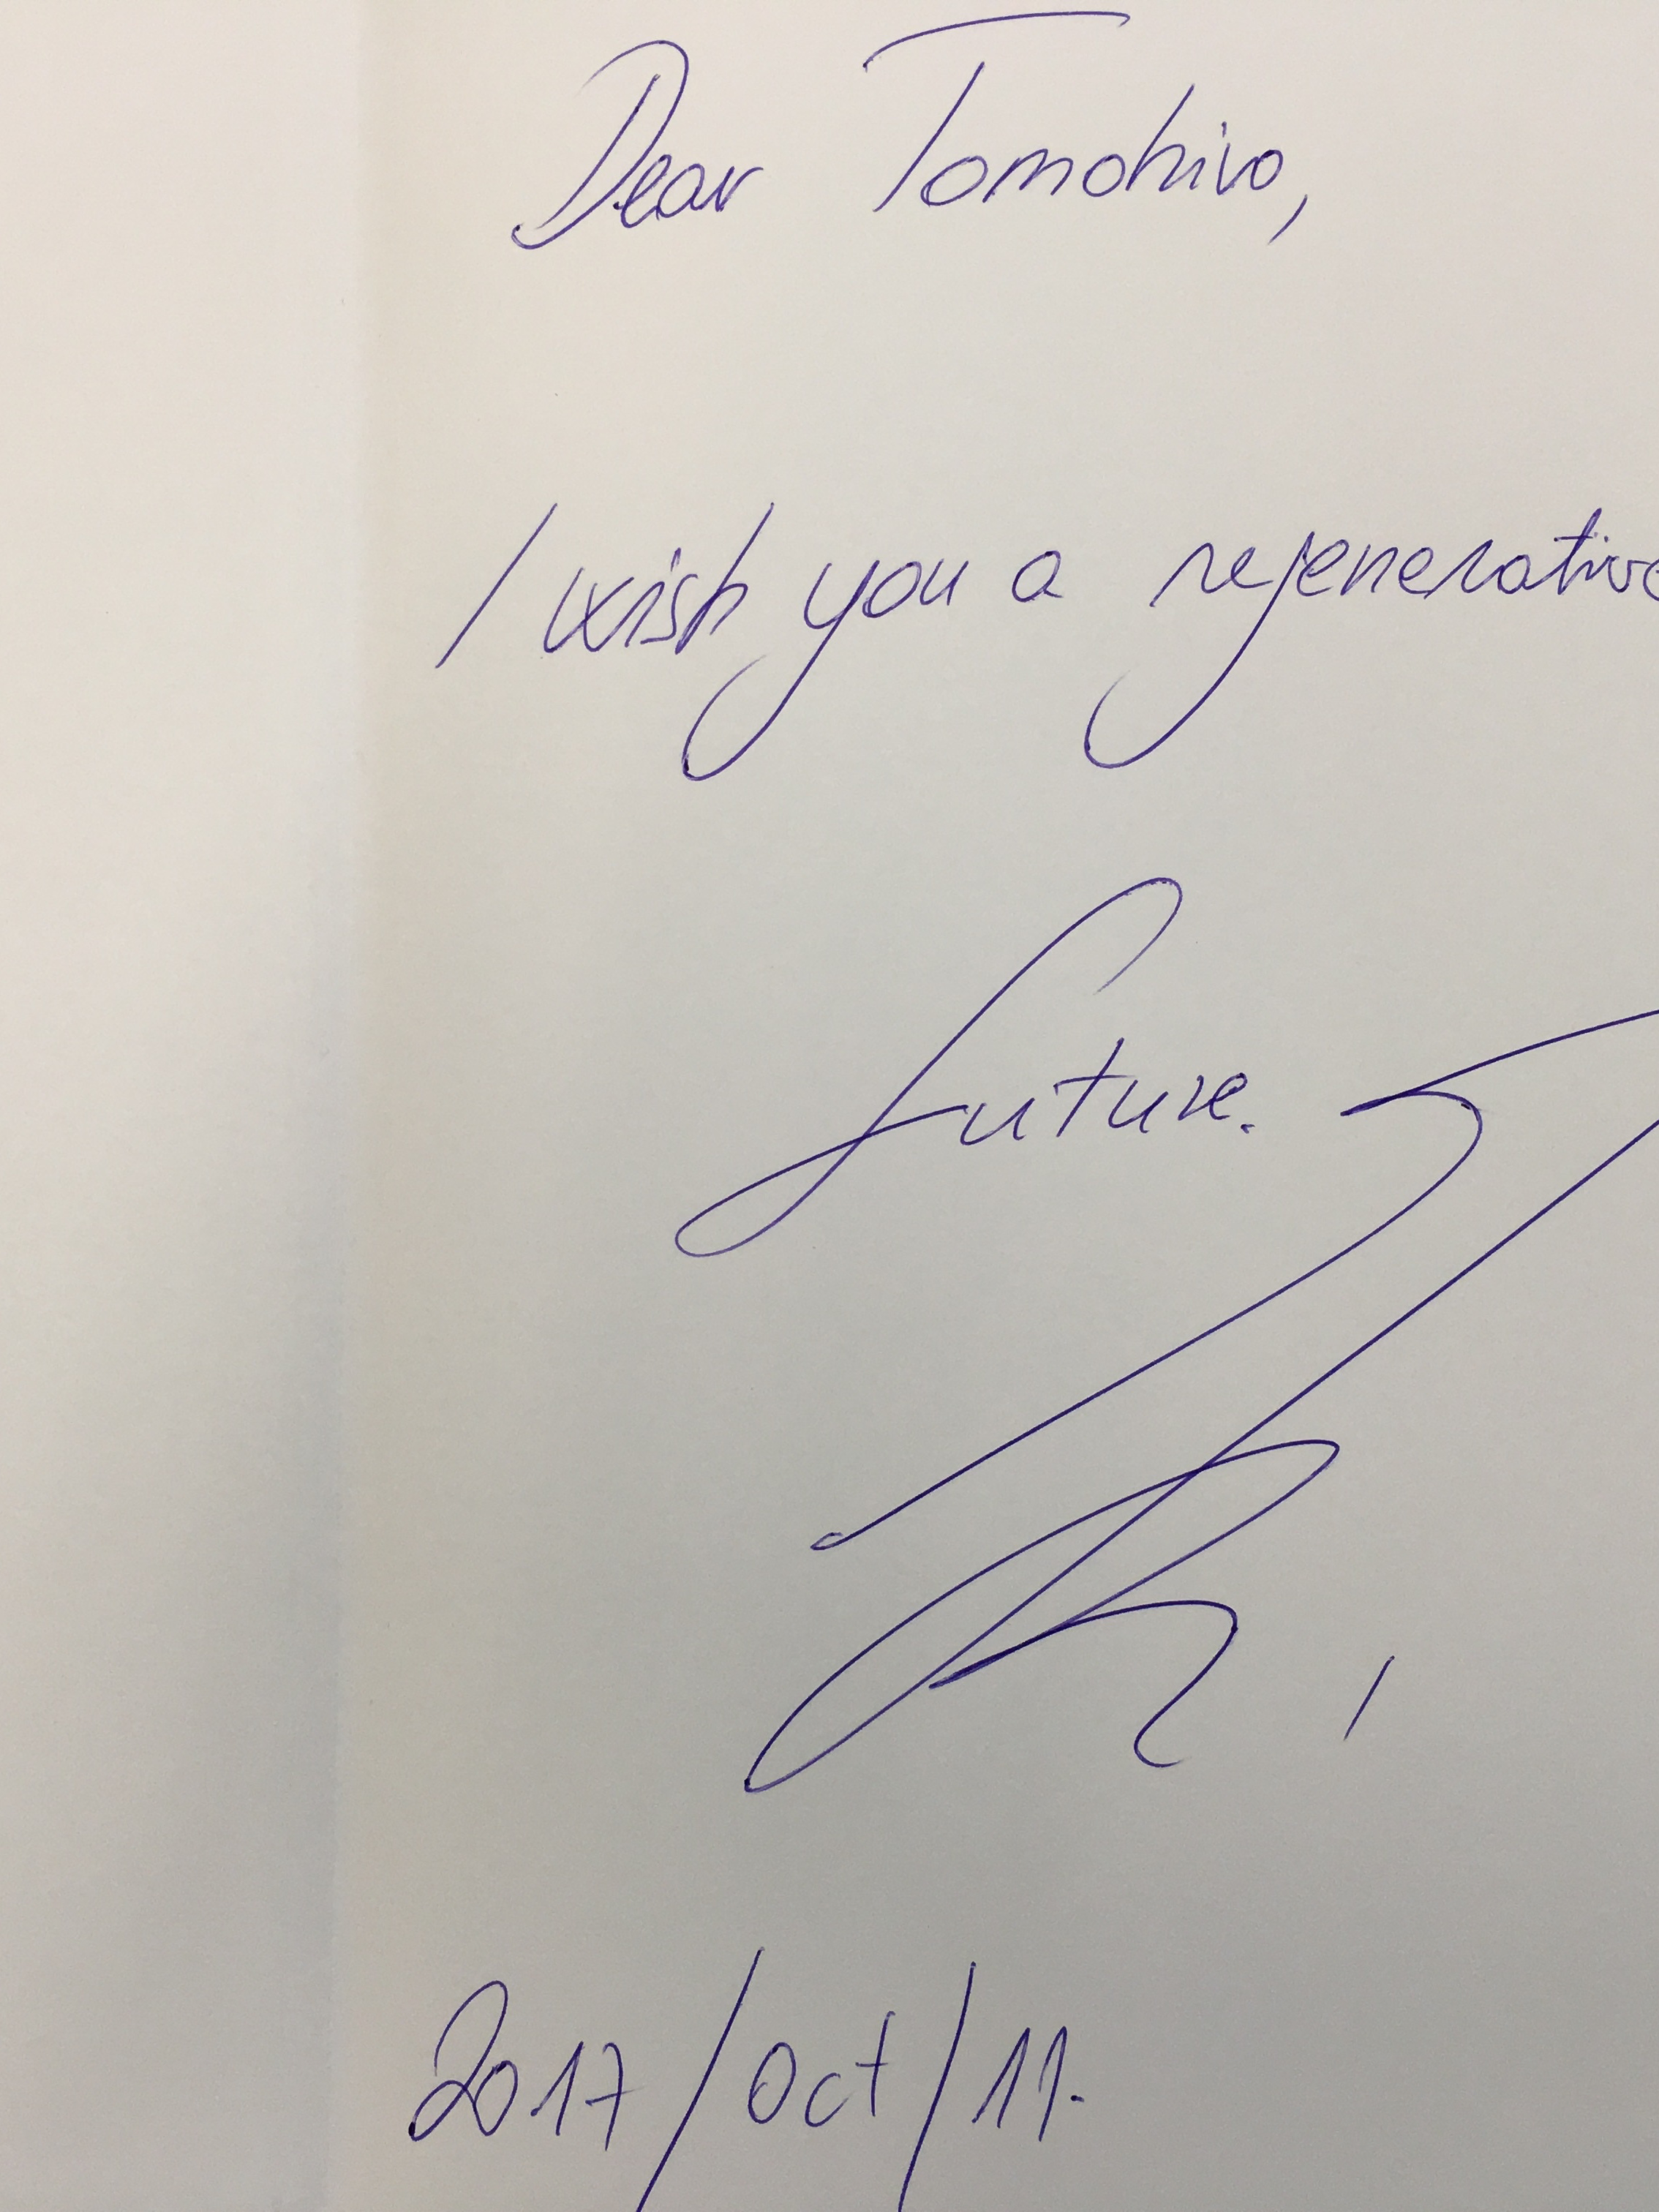 Dear Tomohiro,
I wish you a regenerative
future.
2017/Oct/11.